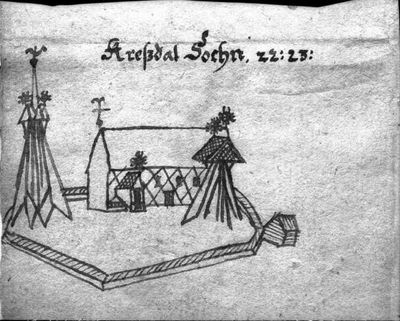 Kreßdal Sochn. 22:23: